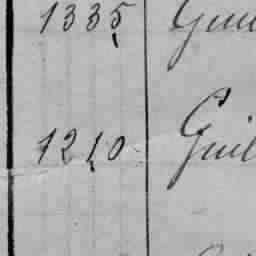 1335 Guil
1210 Guil